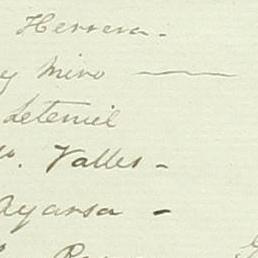 Herrera.
y Miro
Letemiel
o. Valles
Ayarsa